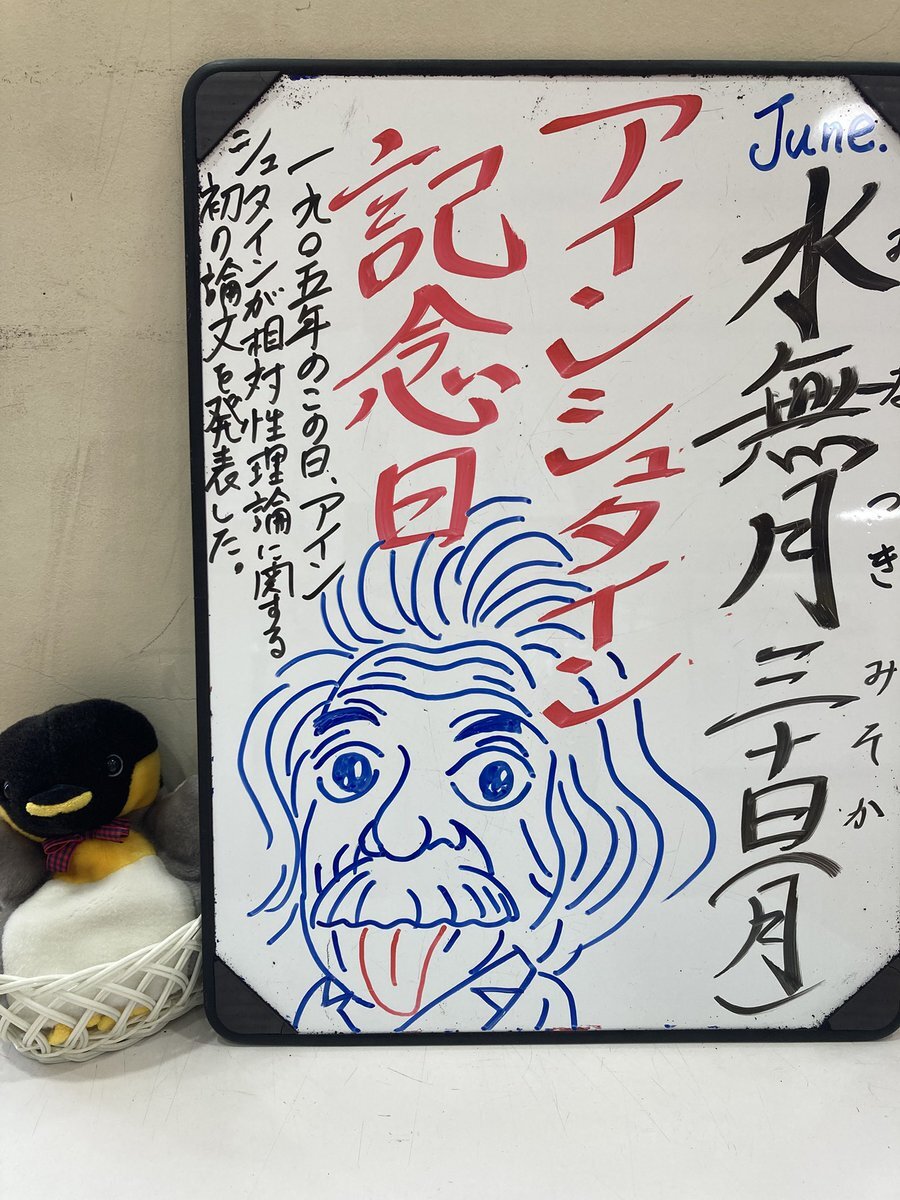 June.
水無月三十日(月)
みなつき みそか
アインシュタイン
記念日
一九〇五年のこの日、アイン
シュタインが相対性理論に関する
初の論文を発表した。